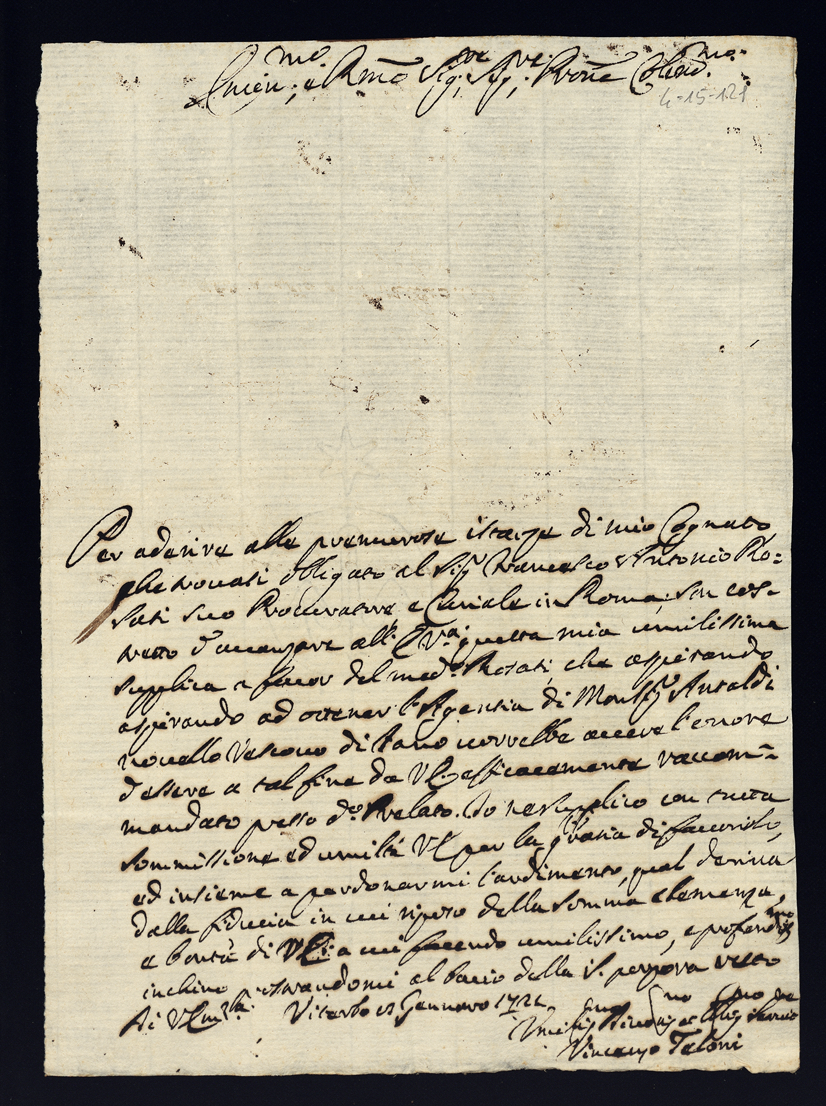 Emin.mo, e R.mo Sig.re Sig.re, Prõne Col.mo
4-15-121
Per aderire alle premurose istanze di mio Cognato,
che trovasi obligato al Sig.r Francesco Antonio Ro=
sati suo Procuratore e Curiale in Roma; son cos-
tretto d'avanzare all' E.Va. questa mia umilissima
supplica a favor del med.o Rosati, che aspirando
aspirando ad ottener l'Agentia di Mons.r Ansaldi
novello Vescovo di Fano vorrebbe avere l'onore
d'essere a tal fine da VE. efficacemente raccom=
mandato presso d.o Prelato. Io ne supplico con tutta
sommissione ed umiltà VE per la grazia di favorirlo,
ed insieme a perdonarmi l'ardimento, qual deriva
dalla fiducia in cui riposo della somma clemenza,
e bontà di VE: a cui facendo umilissimo, e profond.mo
inchino prostrandomi al bacio della S. porpora resto
Di VEm.za Viterbo Gennaro 1721
Umil.mo
Vincenzo Taloni